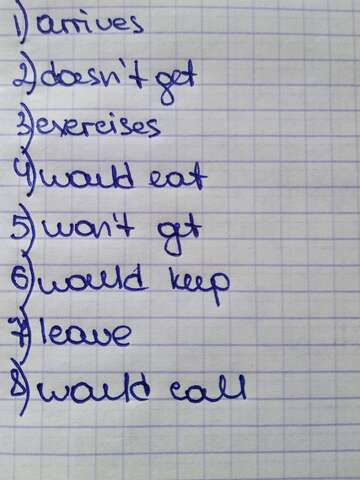 1) arrives
2) doesn't get
3) exercises
4) would eat
5) won't get
6) would keep
7) leave
8) would call